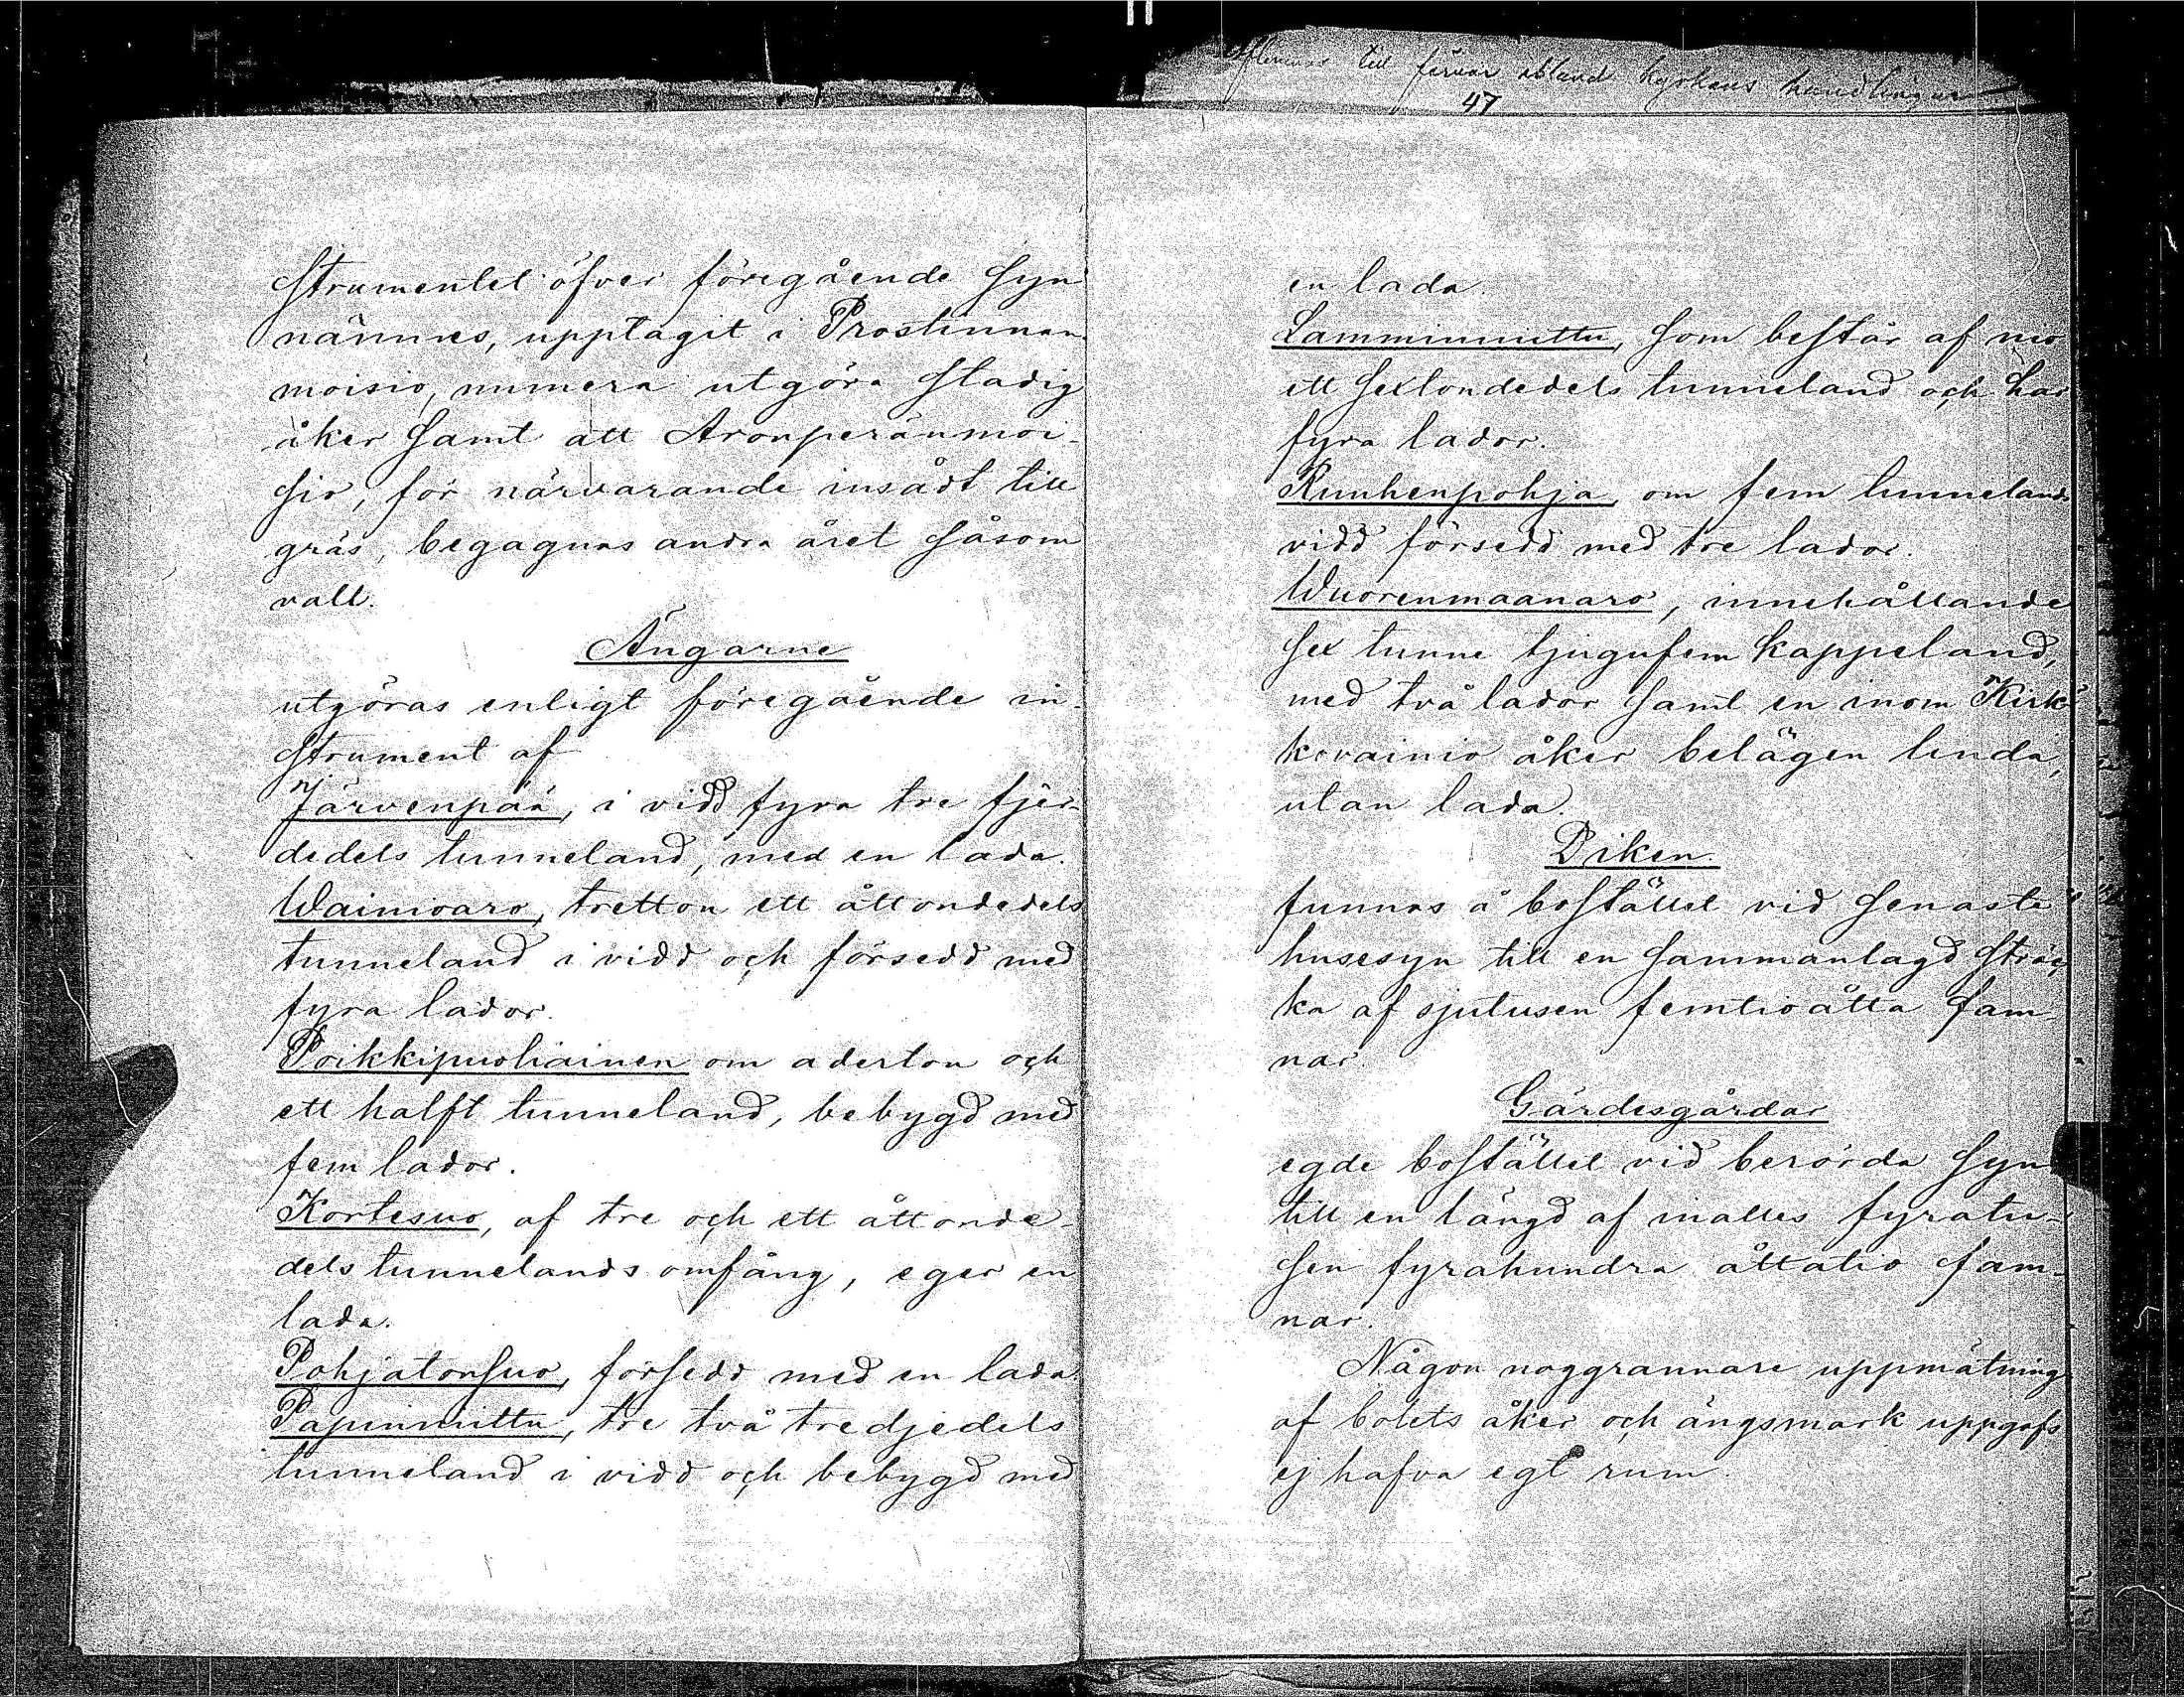 strumentet öfver föregående syn
nämnes, upptagit i Prostinnan-
moisio, numera utgöra stadig
åker samt att Aronperänmoi-
sio, för närvarande insådt till
gräs, begagnas andra året såsom
vall.
Ängarne
utgöras enligt föregående in-
strument af
Järvenpää, i vidd fyra tre fjer-
dedels tunneland, med en lada.
Wainioaro, tretton ett åttondedels
tunneland i vidd och försedd med
fyra lador.
Poikkipuoliainen om aderton och
ett halft tunneland, bebygd med
fem lador.
Kortesuo, af tre och ett åttonde-
dels tunnelands omfång, eger en
lada.
Pohjatonsuo, försedd med en lada.
Papinniittu, tre två tredjedels
tunneland i vidd och bebygd med
till förvar ibland kyrkans handlingar
47
en lada.
Lamminniittu, som består af nio
ett sextondedels tunneland och har
fyra lador.
Ruuhenpohja, om fem tunnelands
vidd försedd med tre lador.
Wuorenmaanaro, innehållande
sex tunne tjugufem kappeland,
med två lador samt en inom Kirk-
kovainio åker belägen linda,
utan lada.
Diken
funnos å bostället vid senaste
husesyn till en sammanlagd sträc-
ka af sjutusen femtioåtta fam-
nar.
Gärdesgårdar
egde bostället vid berörda syn
till en längd af inalles fyratu-
sen fyrahundra åttatio fam-
nar.
Någon noggrannare uppmätning
af bolets åker och ängsmark uppgafs
ej hafva egt rum.